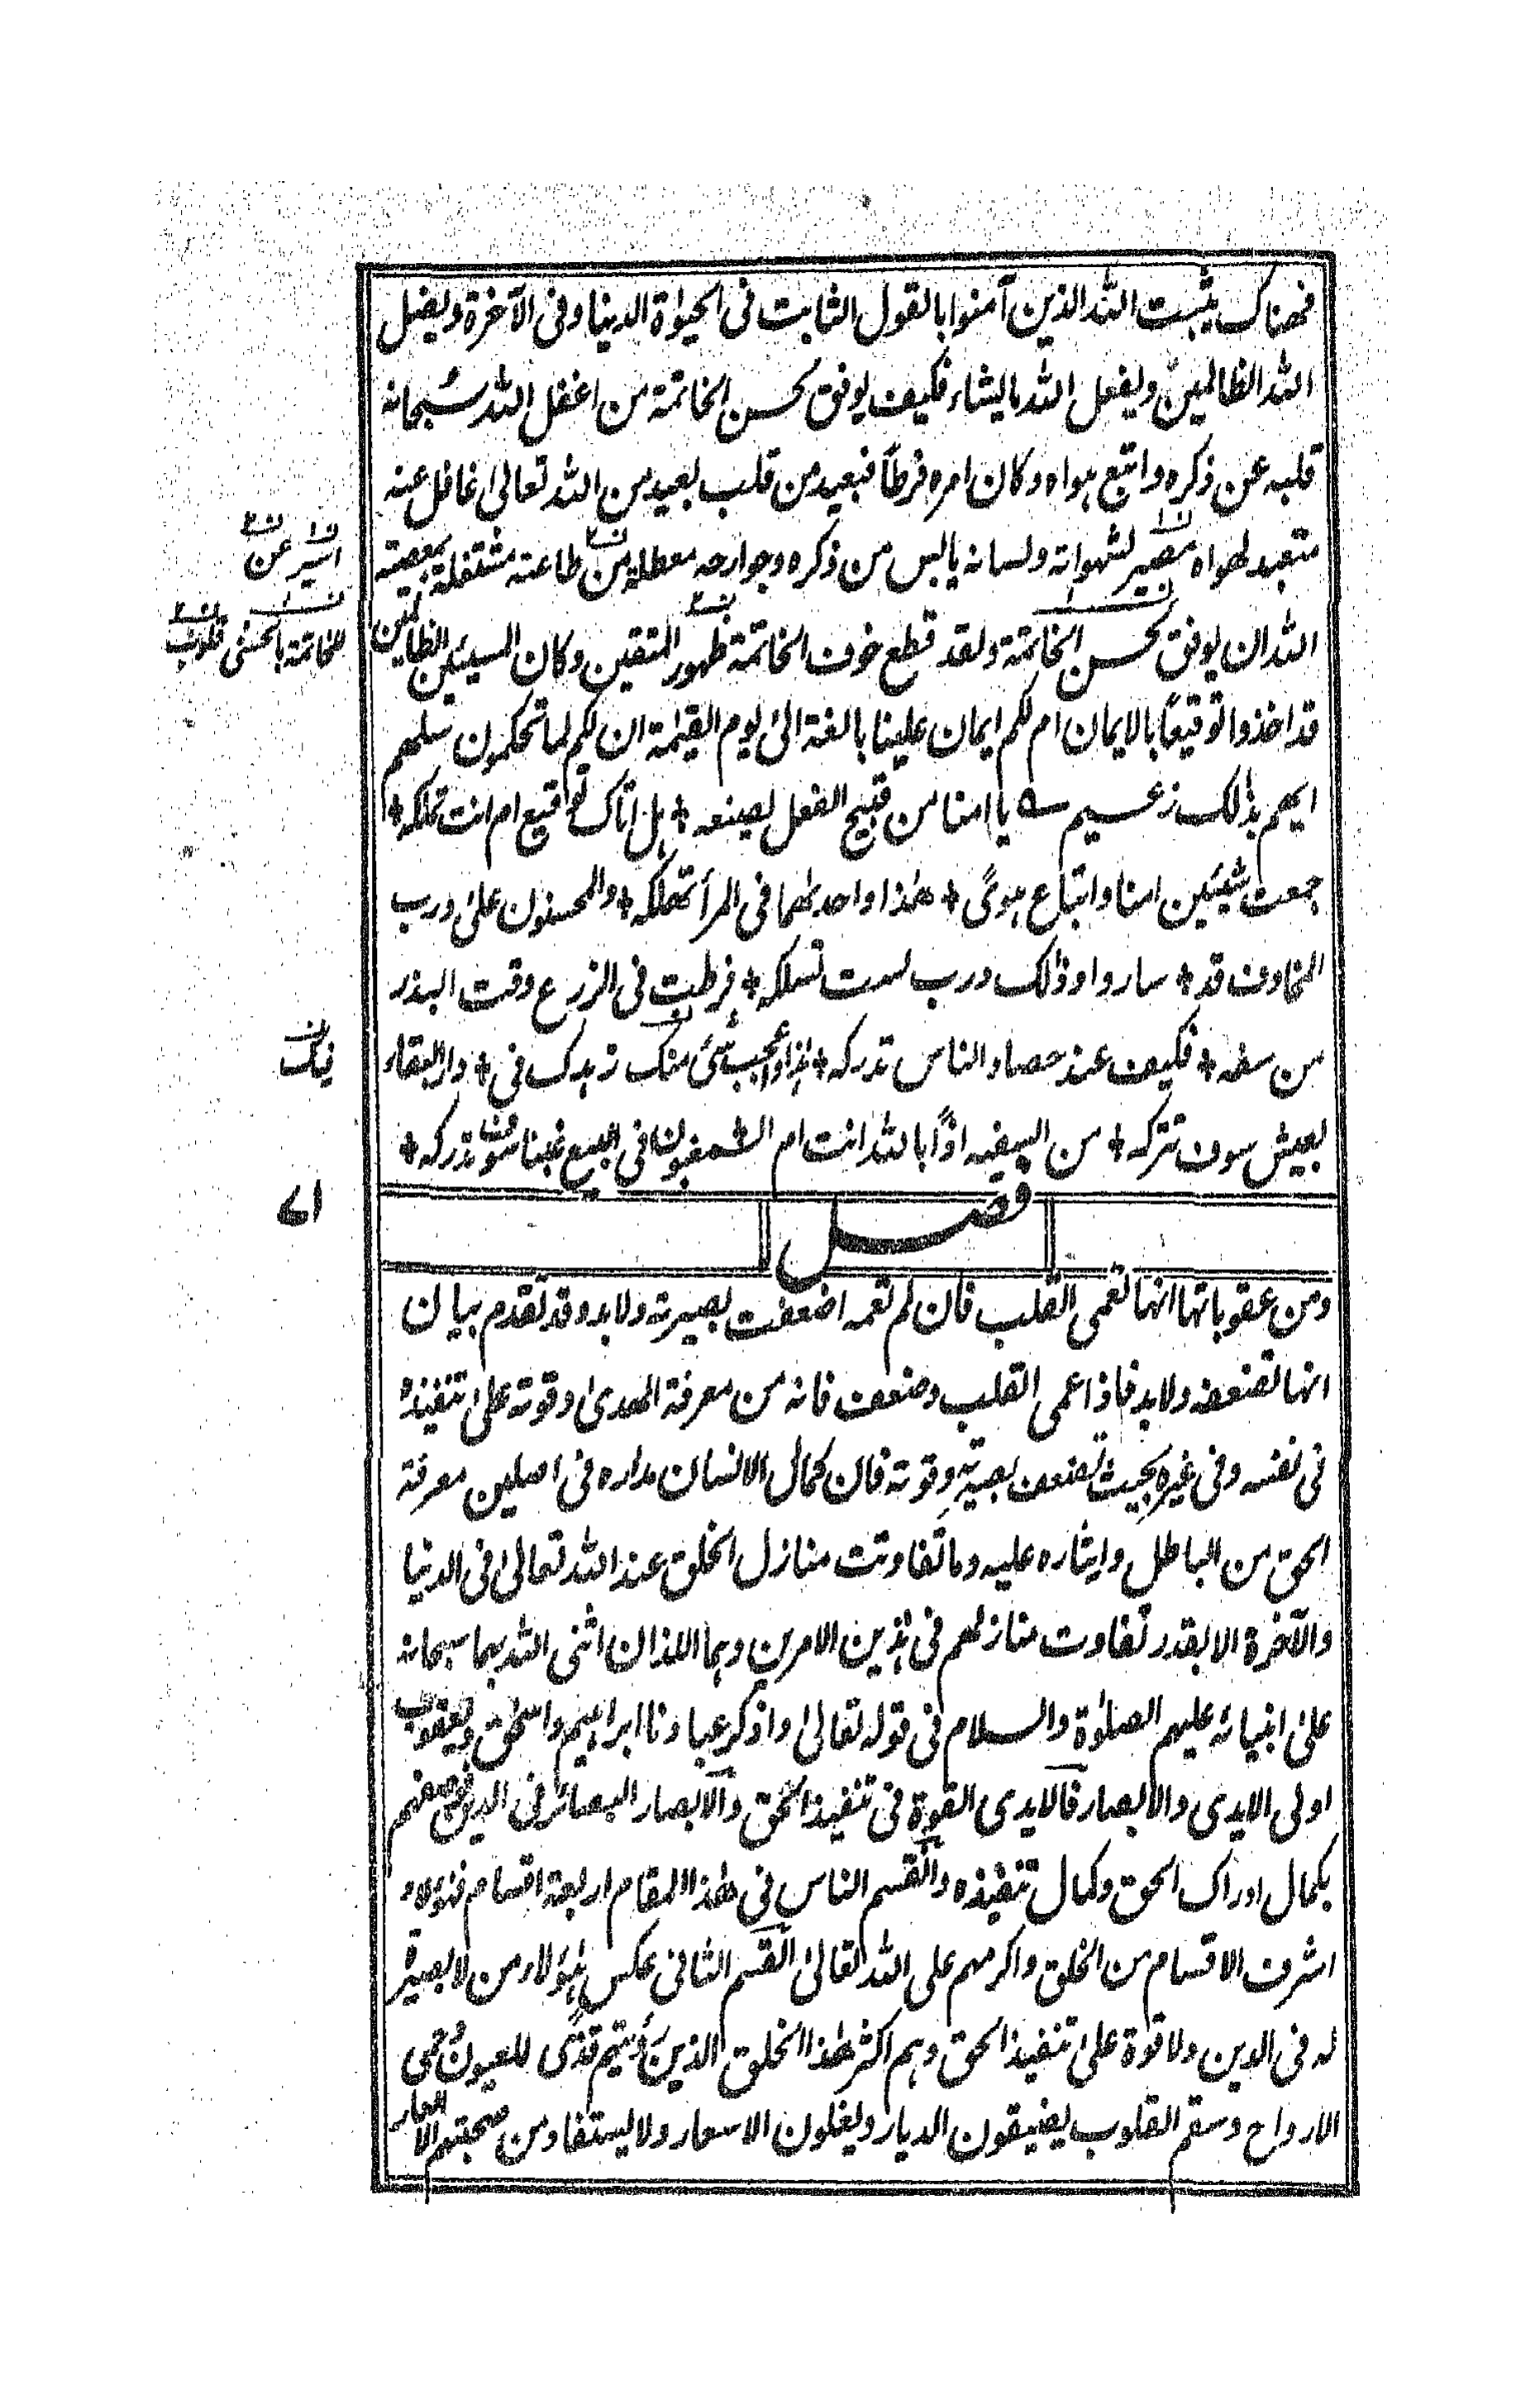 فهناك يثبت الله الذين آمنوا بالقول الثابت فى الحيوٰة الدنيا وفى الآخرة ويضل
الله الظالمين ويفعل الله ما يشاء فكيف يوفق لحسن الخاتمة من اغفل الله سبحانه
قلبه عن ذكره واتبع هواه وكان امره فرطاً فبعيد من قلب بعيد من الله تعالىٰ غافل عنه
متعبد لهواه مصير لشهواته ولسانه يابس من ذكره وجوارحه معطلة من طاعته مشتغلة بمعصيته
الله ان يوفق لحسن الخاتمة ولقد قطع خوف الخاتمة ظهور المتقين وكان المسيئين الظالمين
قد اخذوا توقيعًا بالايمان ام لكم ايمان علينا بالغة الىٰ يوم القيٰمة ان لكم لما تحكمون سلهم
ايهم بذٰلك زعيم ؎ يا امنا من قبيح الفعل يصنعه + هل اتاك توا قيع ام انت تملكه +
جمعت شيئين امنا واتباع هوىً + هٰذا واحدٰهما فى المرأ تهلكه + والمحسنون علىٰ درب
المخاوف قد + ساروا وذٰلك درب لست تسلكه + فرطت فى الزرع وقت البذر
من سفه + فكيف عند حصاد الناس تدركه + هذا واعجب شئ منك زهدك فى + دار البقاء
بعيش سوف تتركه + من السفيه اذًا بالله انت ام المغبون فى البيع غبنا سوف تدركه +
فصل
ومن عقوباتها انها تعمى القلب فان لم تعمه اضعفت بصيرته ولابد وقد تقدم بيان
انها تضعفه ولابد فاذا عمى القلب وضعف فاته من معرفة الهدىٰ وقوته علىٰ تنفيذهٔ
فى نفسه وفى غيره بحيث تضعف بصيرته وقوته فان كمال الانسان مداره فى اصلين معرفة
الحق من الباطل وايثاره عليه وما تفاوتت منازل الخلق عند الله تعالىٰ فى الدنيا
والآخرة الا بقدر تفاوت منازلهم فى هذين الامرين وهما اللذان اثنى الله بهما سبحانه
علىٰ انبيائه عليهم الصلوٰة والسلام فى قوله تعالىٰ واذكر عبادنا ابراهيم واسحٰق ويعقوب
اولى الايدى والابصار فالايدى القوة فى تنفيذ الحق والابصار البصائر فى الدين فوصفهم
بكمال ادراك الحق وكمال تنفيذه وانقسم الناس فى هٰذا المقام اربعة اقسام فهٰؤلاء
اشرف الاقسام من الخلق واكرمهم على الله تعالىٰ القسم الثانى عكس هٰؤلاء من لا بصيرة
له فى الدين ولا قوة علىٰ تنفيذ الحق وهم اكثر هٰذا الخلق الذين رؤيتهم قذى للعيون حمى
الارواح وسقم القلوب يضيقون الديار ويغلون الاسعار ولا يستفاد من صحبتهم الا العار
ن١ ن٢
اسير عن
ن١ ن٢
للخاتمة بالحسنىٰ قلوب
ن
فيك
٧١